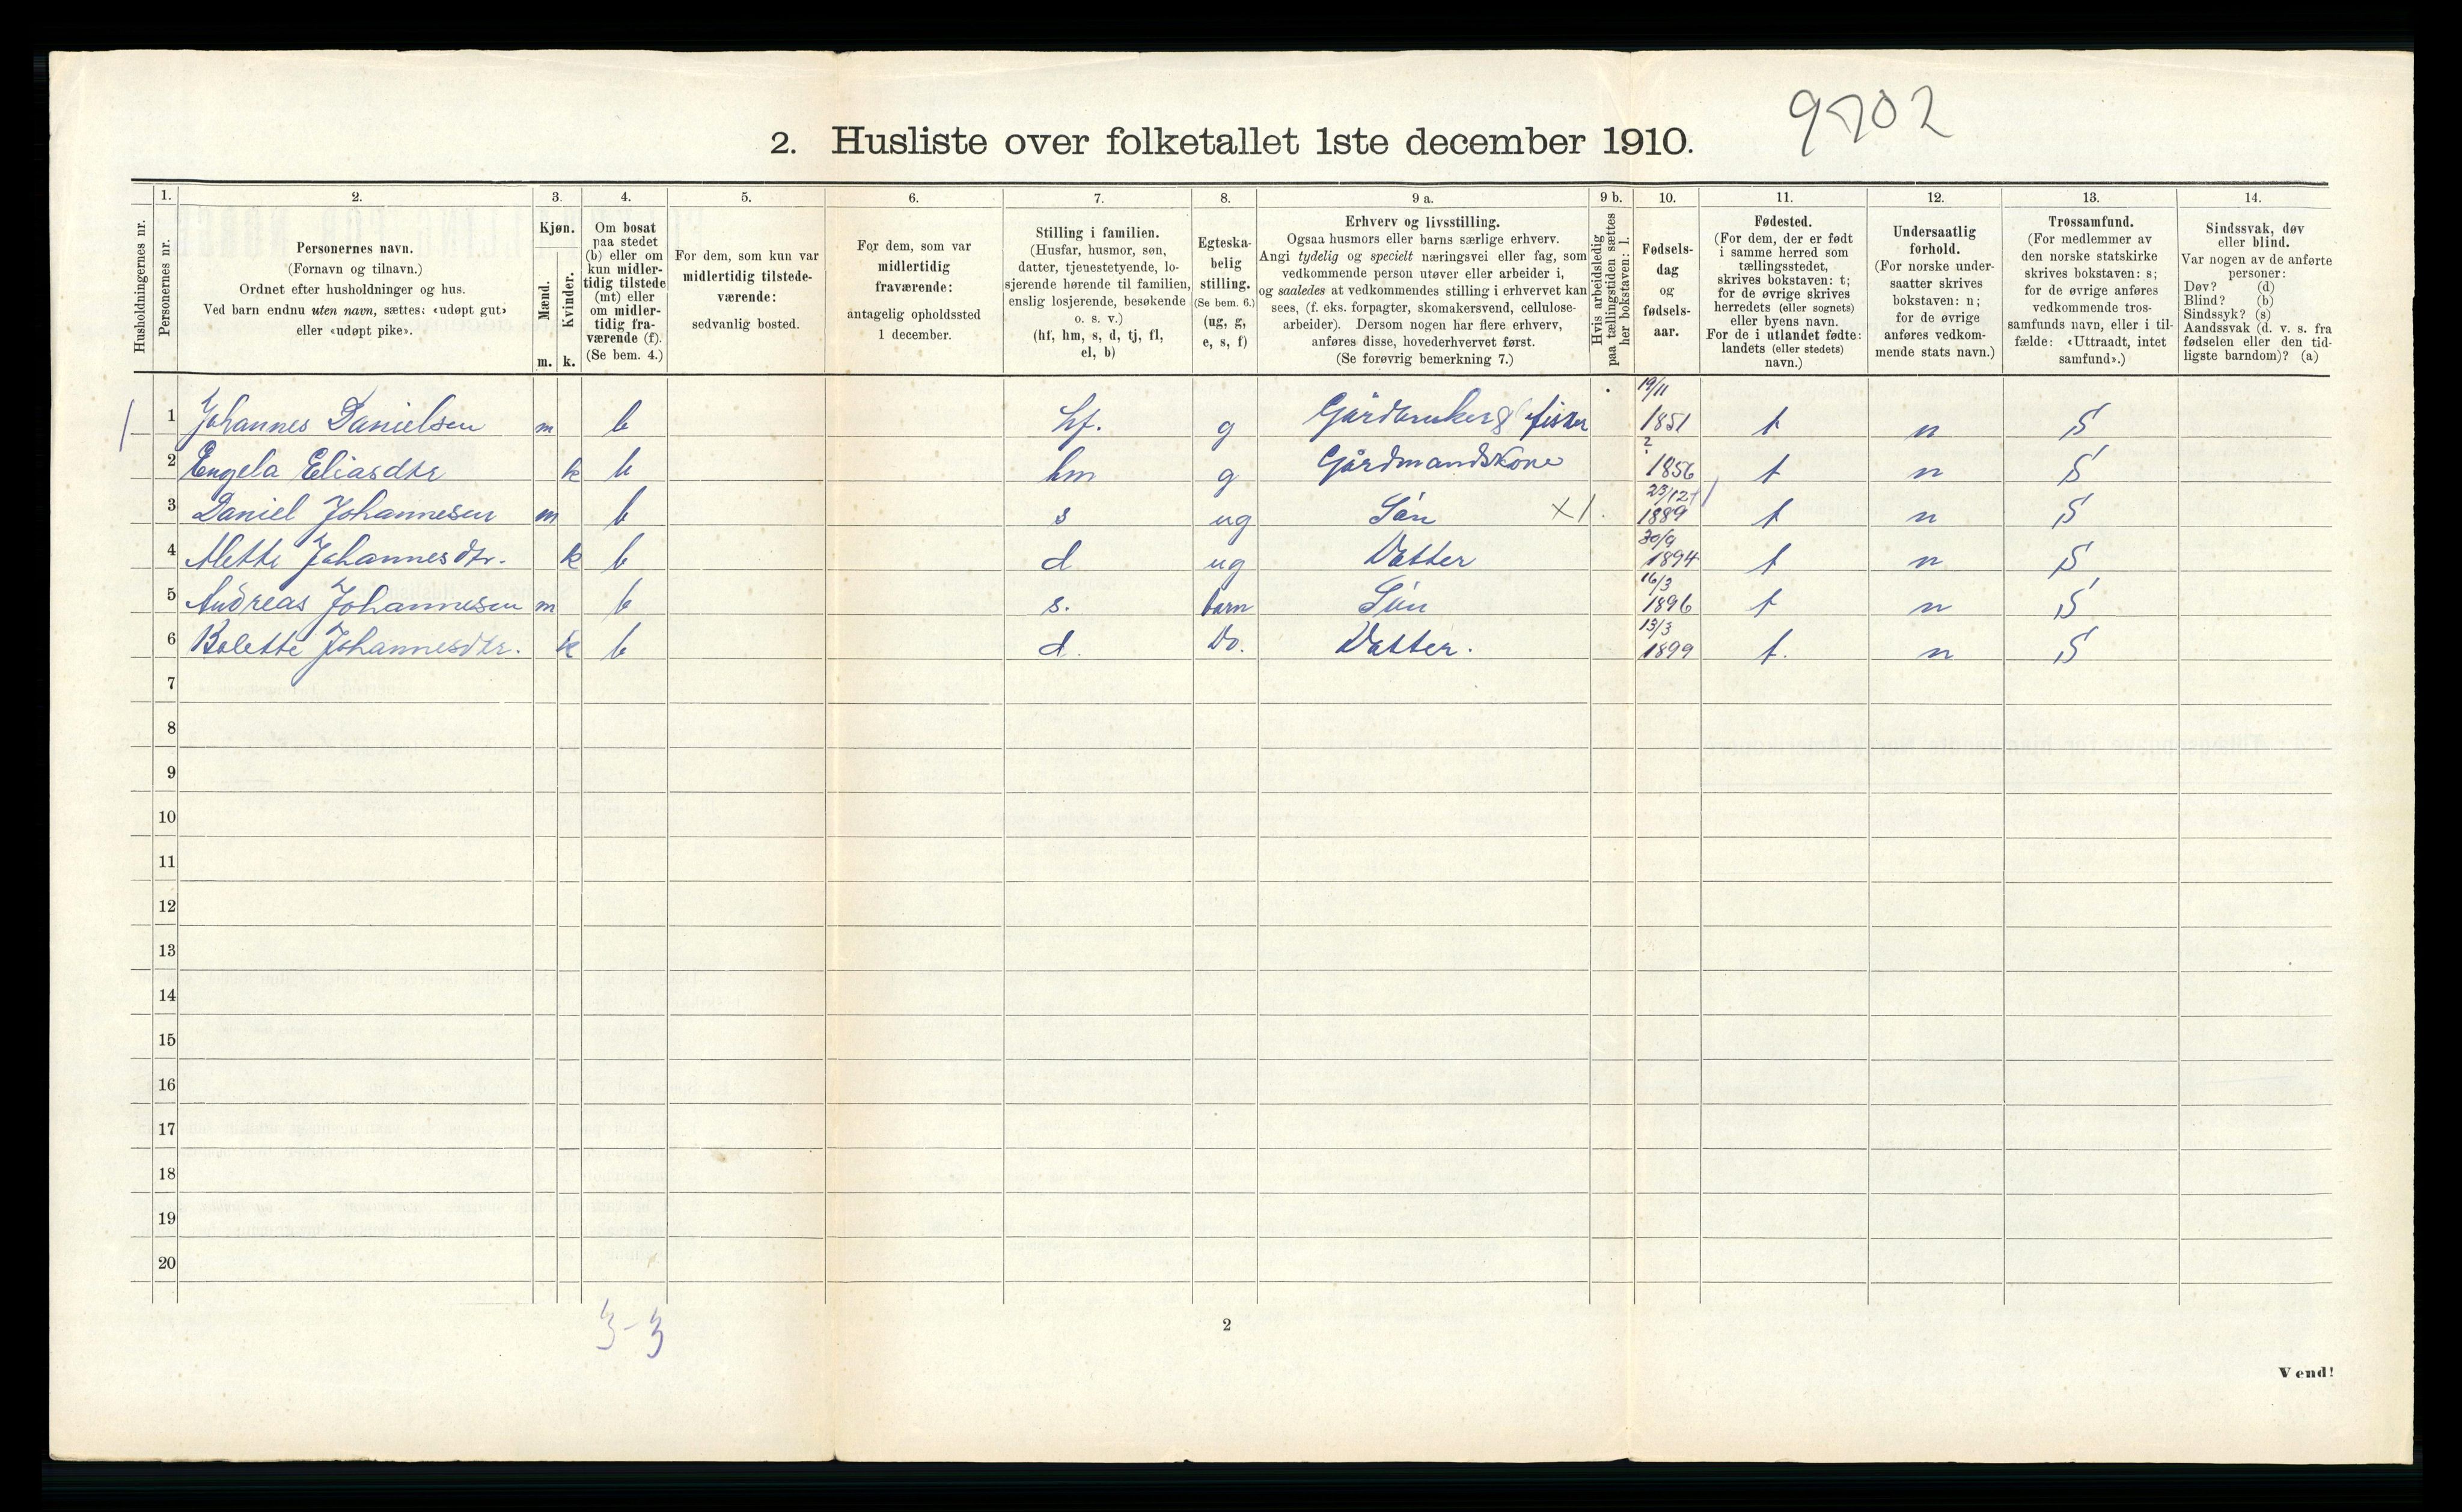 9702
2. Husliste over folketallet 1ste december 1910.
Husholdningernes nr.
1.
Personernes nr.
2.
Personernes navn.
(Fornavn og tilnavn.)
Ordnet efter husholdninger og hus.
Ved barn endnu uten navn, sættes: «udøpt gut»
eller «udøpt pike».
3.
Kjøn.
Mænd.
Kvinder.
m. k.
4.
Om bosat
paa stedet
(b) eller om
kun midler-
tidig tilstede
(mt) eller
om midler-
tidig fra-
værende (f).
(Se bem. 4.)
5.
For dem, som kun var
midlertidig tilstede-
værende:
sedvanlig bosted.
6.
For dem, som var
midlertidig
fraværende:
antagelig opholdssted
1 december.
7.
Stilling i familien.
(Husfar, husmor, søn,
datter, tjenestetyende, lo-
sjerende hørende til familien,
enslig losjerende, besøkende
o. s. v.)
(hf, hm, s, d, tj, fl,
el, b)
8.
Egteska-
belig
stilling.
(Se bem. 6.)
(ug, g,
e, s, f)
9 a.
Erhverv og livsstilling.
Ogsaa husmors eller barns særlige erhverv.
Angi tydelig og specielt næringsvei eller fag, som
vedkommende person utøver eller arbeider i,
og saaledes at vedkommendes stilling i erhvervet kan
sees, (f. eks. forpagter, skomakersvend, cellulose-
arbeider). Dersom nogen har flere erhverv,
anføres disse, hovederhvervet først.
(Se forøvrig bemerkning 7.)
9 b.
Hvis arbeidsledig
paa tællingstiden sættes
her bokstaven: l.
10.
Fødsels-
dag
og
fødsels-
aar.
11.
Fødested.
(For dem, der er født
i samme herred som
tællingsstedet,
skrives bokstaven: t;
for de øvrige skrives
herredets (eller sognets)
eller byens navn.
For de i utlandet fødte:
landets (eller stedets)
navn.)
12.
Undersaatlig
forhold.
(For norske under-
saatter skrives
bokstaven: n;
for de øvrige
anføres vedkom-
mende stats navn.)
13.
Trossamfund.
(For medlemmer av
den norske statskirke
skrives bokstaven: s;
for de øvrige anføres
vedkommende tros-
samfunds navn, eller i til-
fælde: «Uttraadt, intet
samfund».)
14.
Sindssvak, døv
eller blind.
Var nogen av de anførte
personer:
Døv? (d)
Blind? (b)
Sindssyk? (s)
Aandssvak (d. v. s. fra
fødselen eller den tid-
ligste barndom)? (a)
1 1 Johannes Danielsen m b hf. g Gårdbruker & fisker 19/11 1851 t n S
2 Engela Eliasdtr k b hm g Gårdmandskone ? 1856 t n S
3 Daniel Johannesen m b s ug Søn X1. 23/12 1889 t n S
4 Mette Johannesdtr. k b d ug Datter 30/9 1894 t n S
5 Andreas Johannesen m b s. barn Søn 16/3 1896 t n S
6 Bolette Johannesdtr. k b d. Do. Datter. 13/3 1899 t. n S
7
8
9
10
11
12
13
14
15
16
17
18
19
20
3-3
2
Vend!